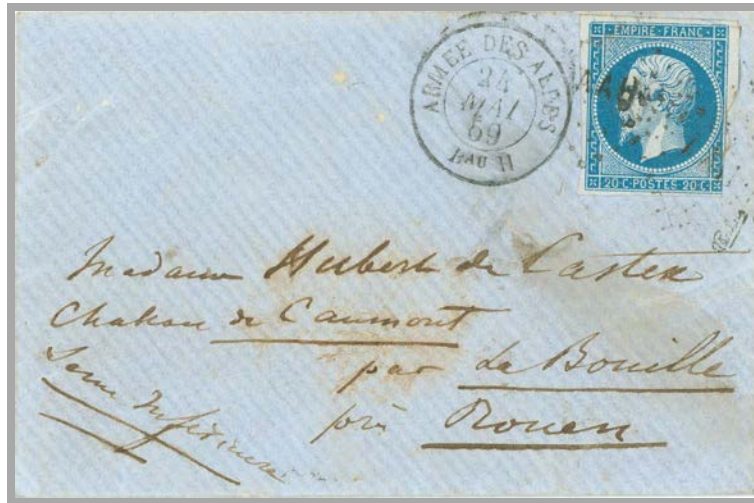 ARMÉE DES ALPES
24
MAI
59
Bau H
EMPIRE·FRANC·
AAH
20·C·POSTES·20·C·
Madame Hubert de Castex
Chateau de Caumont
par La Bouille
près Rouen
Seine Inférieure